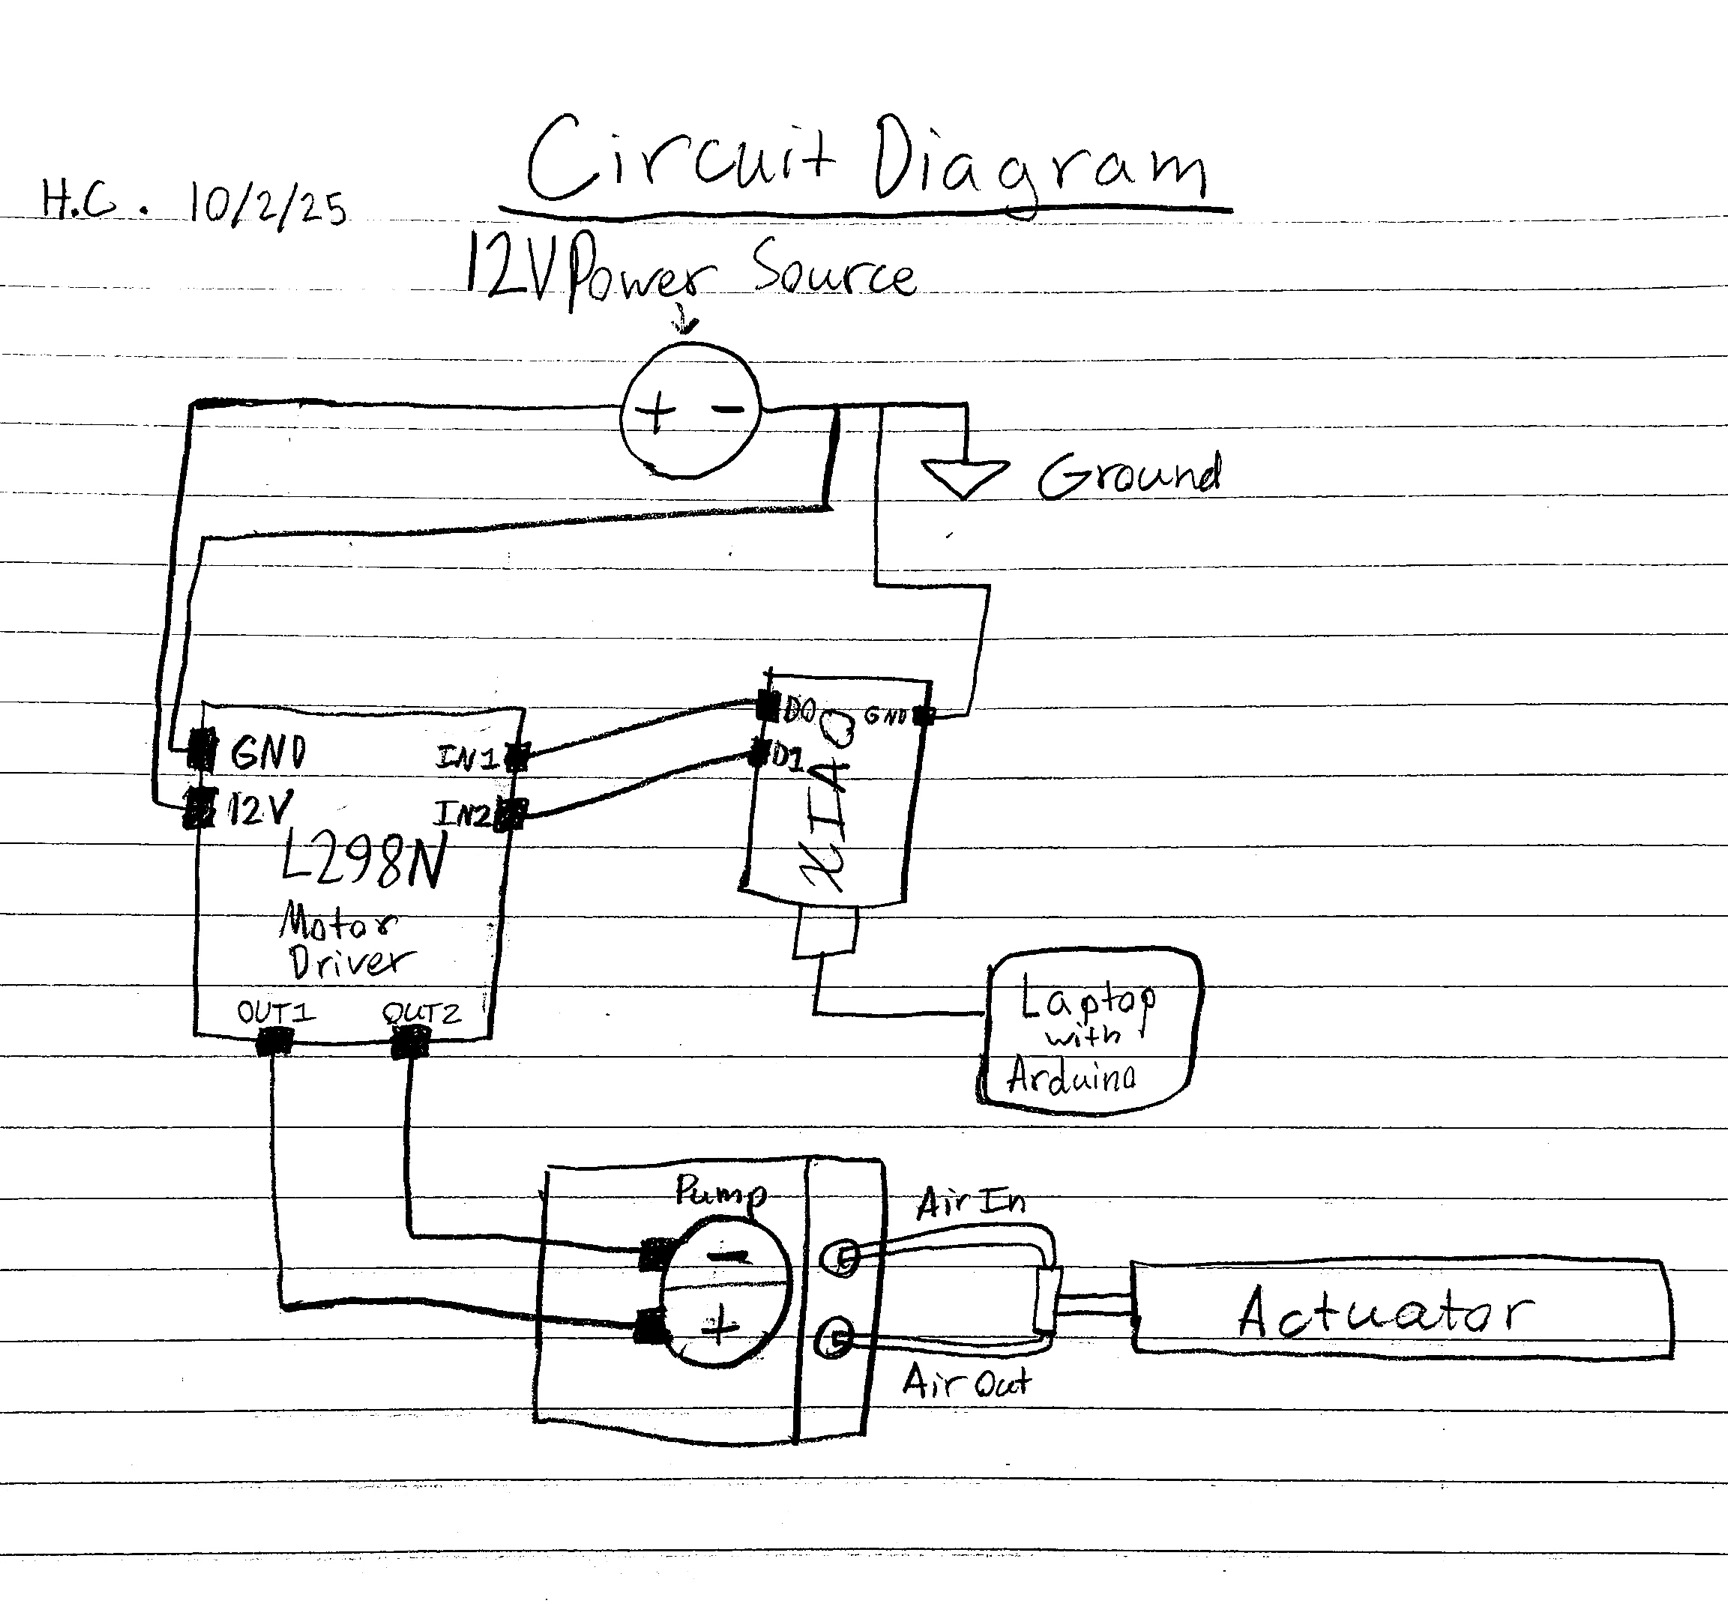 Circuit Diagram
H.C. 10/2/25
12V Power Source
+ -
Ground
GND
12V
IN1
IN2
L298N
Motor
Driver
OUT1
OUT2
D0
D1
GND
XIAO
Laptop
with
Arduino
Pump
-
+
Air In
Air Out
Actuator